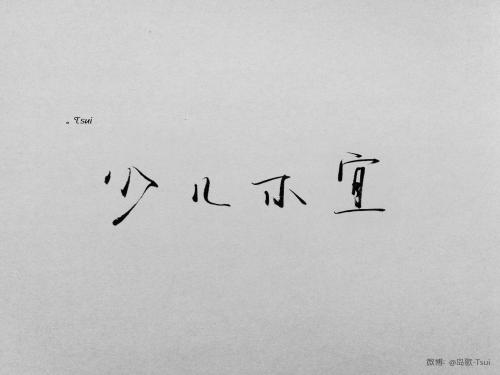 。Tsui
少儿不宜
微博: @岛歌-Tsui